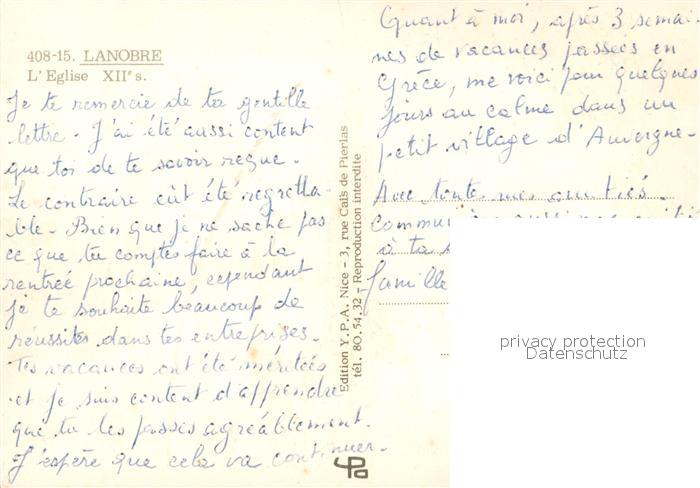 408-15. LANOBRE
L'Eglise XIIe s.
Je te remercie de ta gentille
lettre. J'ai été aussi content
que toi de te savoir reçue.
Le contraire eût été regretta-
ble. Bien que je ne sache pas
ce que tu comptes faire à la
rentrée prochaine, cependant
je te souhaite beaucoup de
réussites dans tes entreprises.
Tes vacances ont été méritées
et je suis content d'apprendre
que tu les passes agréablement.
J'espère que cela va continuer.
Edition Y.P.A. Nice - 3, rue Caïs de Pierlas
tél. 80.54.32 - Reproduction interdite
YPA
Quant à moi, après 3 semai-
nes de vacances passées en
Grèce, me voici pour quelques
jours au calme dans un
petit village d'Auvergne.
Avec toutes mes amitiés.
à ta
famille
privacy protection
Datenschutz